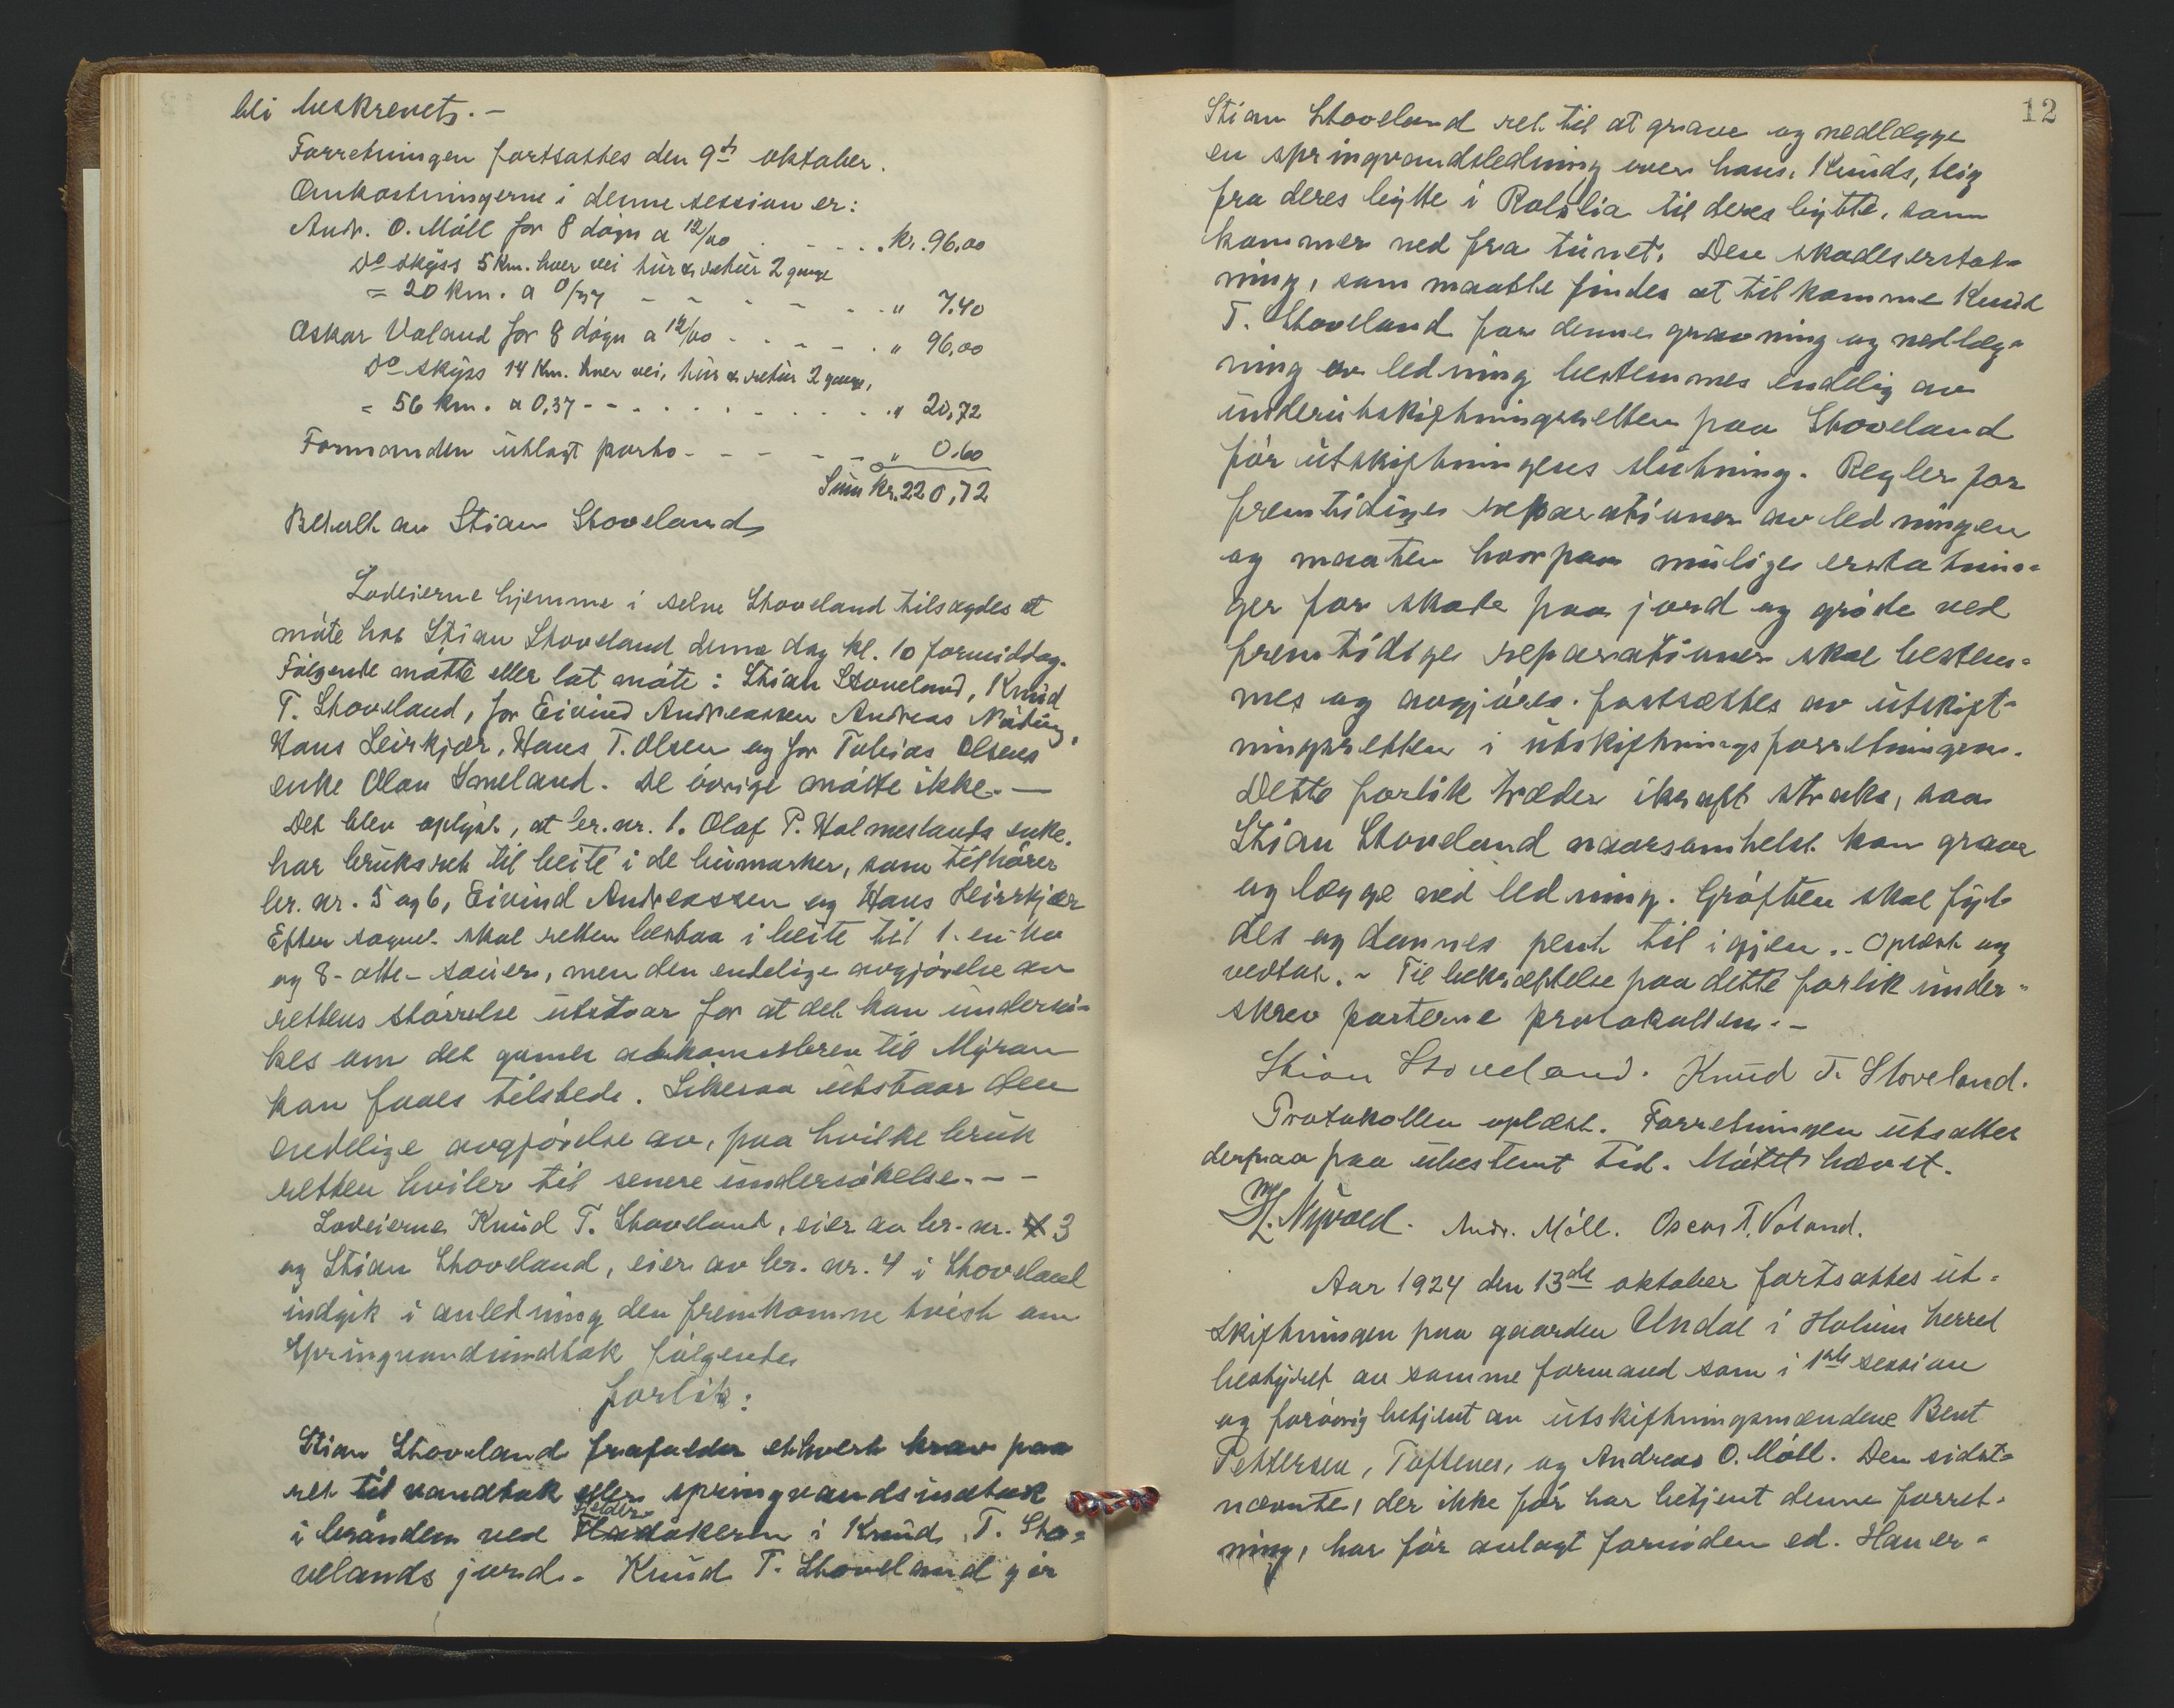 bli beskrevet. -
Forretningen fortsattes den 9de oktober.
Omkostningerne i denne session er:
Andr. O. Möll for 8 døgn a 12/00 . - - - . kr. 96,00
Do skyss 5 km. hver vei tur & retur 2 gange
= 20 km. a 0/37 - - - - - . . " 7.40
Oskar Valand for 8 døgn a 12/00 - . . - - . " 96,00
Do skyss 14 km. hver vei, tur & retur 2 gange,
= 56 km. a 0,37 - - . . . . - . . . " 20,72
Formanden utlagt porto - - - - - - " 0.60
Sum kr. 220,72
Betalt av Stian Stoveland
Lodeierne hjemme i selve Stoveland tilsagdes at
møte hos Stian Stoveland denne dag kl. 10 formiddag.
Følgende møtte eller lot møte: Stian Stoveland, Knud
T. Stoveland, for Eivind Andreassen Andreas Nøding,
Hans Leirkjær, Hans T. Olsen og for Tobias Olsens
enke Olav Ymeland. De øvrige møtte ikke. —
Det blev oplyst, at br. nr. 1. Olaf P. Holmeslands enke.
har bruksret til beite i de bumarker, som tilhører
br. nr. 5 og 6, Eivind Andreassen og Hans Leirkjær
Efter sagnet skal retten bestaa i beite til 1 - en - ko
og 8 - otte - sauer, men den endelige avgjørelse av
rettens størrelse utstaar for at det kan undersø-
kes om det gamle adkomstbrev til Myran
kan faaes tilstede. Likesaa utstaar den
endelige avgjørelse av, paa hvilke bruk
retten hviler til senere undersøkelse. - -
Lodeierne Knud T. Stoveland, eier av br. nr. 3
og Stian Stoveland, eier av br. nr. 4 i Stoveland
indgik i anledning den fremkomne tvist om
springvandsindtak følgende
forlik:
Stian Stoveland frafalder ethvert krav paa
ret til vandtak eller springvandsindtak
i brønden ved akeren i Knud T. Sto-
velands jord. - Knud T. Stoveland gir
12
Stian Stoveland ret til at grave og nedlægge
en springvandsledning over hans, Knuds, teig
fra deres bytte i Rolslia til deres bytte, som
kommer ned fra tunet. Den skadeserstat-
ning, som maatte findes at tilkomme Knud
T. Stoveland for denne gravning og nedlæg-
ning av ledning bestemmes endelig av
underutskiftningsretten paa Stoveland
før utskiftningens slutning. Regler for
fremtidige reparationer av ledningen
og maaten hvorpaa mulige erstatnin-
ger for skade paa jord og grøde ved
fremtidige reparationer skal bestem-
mes og avgjøres. fastsættes av utskift-
ningsretten i utskiftningsforretningen.
Dette forlik træder ikraft straks, saa
Stian Stoveland naarsomhelst kan grave
og lægge ned ledning. Grøften skal fyl-
des og dannes pent til igjen. - Oplæst og
vedtat. - Til bekræftelse paa dette forlik under-
skrev parterne protokollen. -
Stian Stoveland. Knud T. Stoveland.
Protokollen oplæst. Forretningen utsattes
derpaa paa ubestemt tid. Møtet hævet.
Nyvold. Andr. Möll. Oscar T. Valand.
Aar 1924 den 13de oktober fortsattes ut-
skiftningen paa gaarden Undal i Holum herred
bestyret av samme formand som i 1ste session
og forøvrig betjent av utskiftningsmændene Bent
Pettersen, Toftenes, og Andreas O. Möll. Den sidst-
nævnte, der ikke før har betjent denne forret-
ning, har før avlagt fornøden ed. Han er-